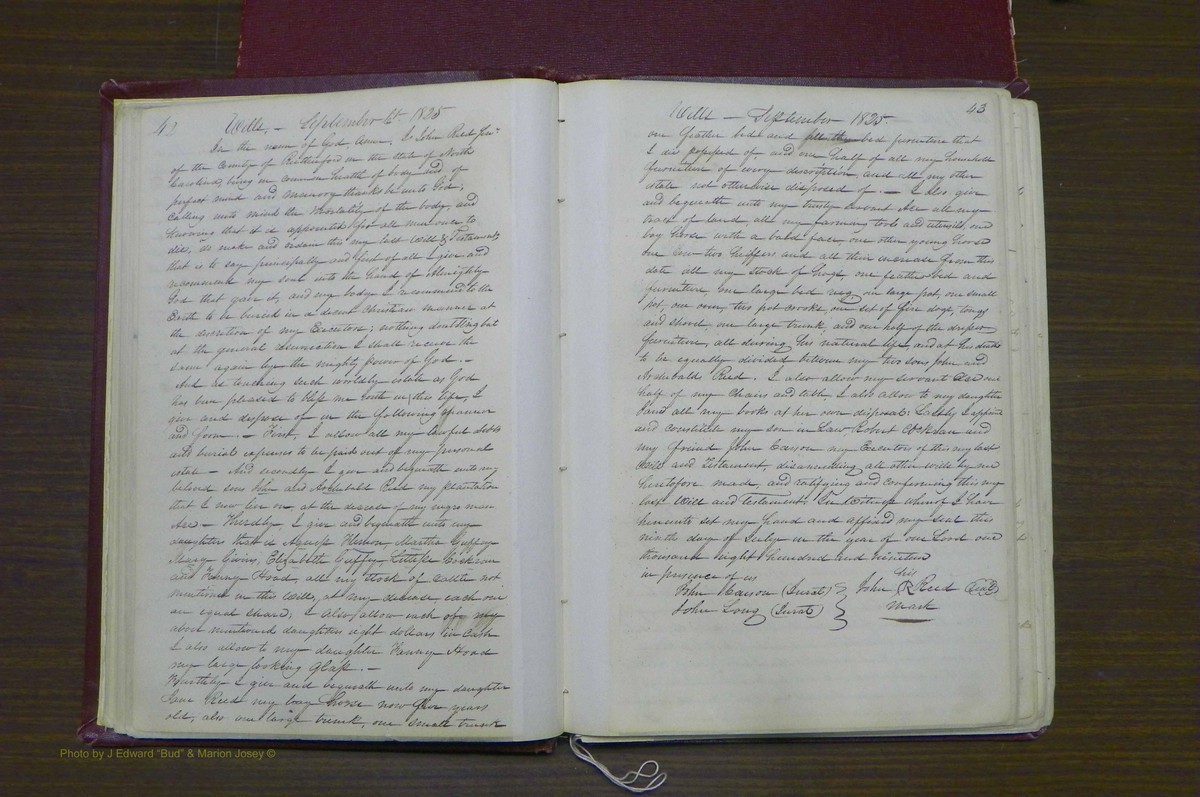 42 Wills, — September Ct. 1825
In the name of God Amen. I John Reed Senr
of the County of Rutherford in the State of North
Carolina, being in common health of body and of
perfect mind and memory thanks be unto God;
Calling unto mind the Mortality of the body, and
knowing that it is appointed for all men once to
die, do make and ordain this my last Will & Testament
that is to say principally and first of all I give and
recommend my soul unto the hand of Almighty
God that gave it, and my body I recommend to the
Earth to be buried in a decent christian manner at
the discretion of my Executors; nothing doubting but
at the general resurrection I shall receive the
same again by the mighty power of God. —
And as touching such worldly estate as God
has been pleased to bless me with in this life, I
give and dispose of in the following manner
and form. — First, I allow all my lawful debts
and burial expenses to be paid out of my personal
estate — And secondly I give and bequeath unto my
beloved sons John and Archibald Reed my plantation
that I now live on, at the decease of my negro man
Thirdly I give and bequeath unto my
daughters that is Agness Martha Guffey
Mary Givins, Elizabeth Guffey, Cockson
and Fanny Hood, all my stock of Cattle not
mentioned in this Will, at my decease, each one
an equal share, I also allow each of my
above mentioned daughters eight dollars in Cash
I also allow to my daughter Fanny Hood
my large looking Glass. —
Fourthly I give and bequeath unto my daughter
Jane Reed my bay horse now five years
old, also one large trunk, one small trunk
Wills — September 1825. 43
one feather bed and all the bed furniture that
I am possessed of and one half of all my household
furniture of every discription, and all my other
estate not otherwise disposed of. — I also give
and bequeath unto my trusty servant all my
tract of land, all my farming tools and utensils, one
bay horse with a bald face one other young horse
one cow two heiffers and all their increase from this
date all my stock of hogs, one feather bed and
furniture, one large bed one large pot, one small
pot, one oven, two pot hooks, one set of fire dogs, tongs
and shovel, one large trunk, and one half of the dresser
furniture, all during his natural life, and at his death
to be equally divided between my two sons John and
Archibald Reed. I also allow my servant one
half of my Chairs and table, I also allow to my daughter
Jane all my books at her own disposal: Lastly I appoint
and constitute my son in Law, Robert Cockson and
my friend John Carson my Executors of this my last
Will and Testament, disannulling all other wills by me
heretofore made, and ratifying and confirming this my
last Will and testament. In Witness whereof I have
hereunto set my hand and affixed my seal this
ninth day of July in the year of our Lord one
thousand eight hundred and nineteen
in presence of us
John Carson (Jurat) his
John Long (Jurat) John R Reed (Seal)
mark
Photo by J Edward "Bud" & Marion Josey ©